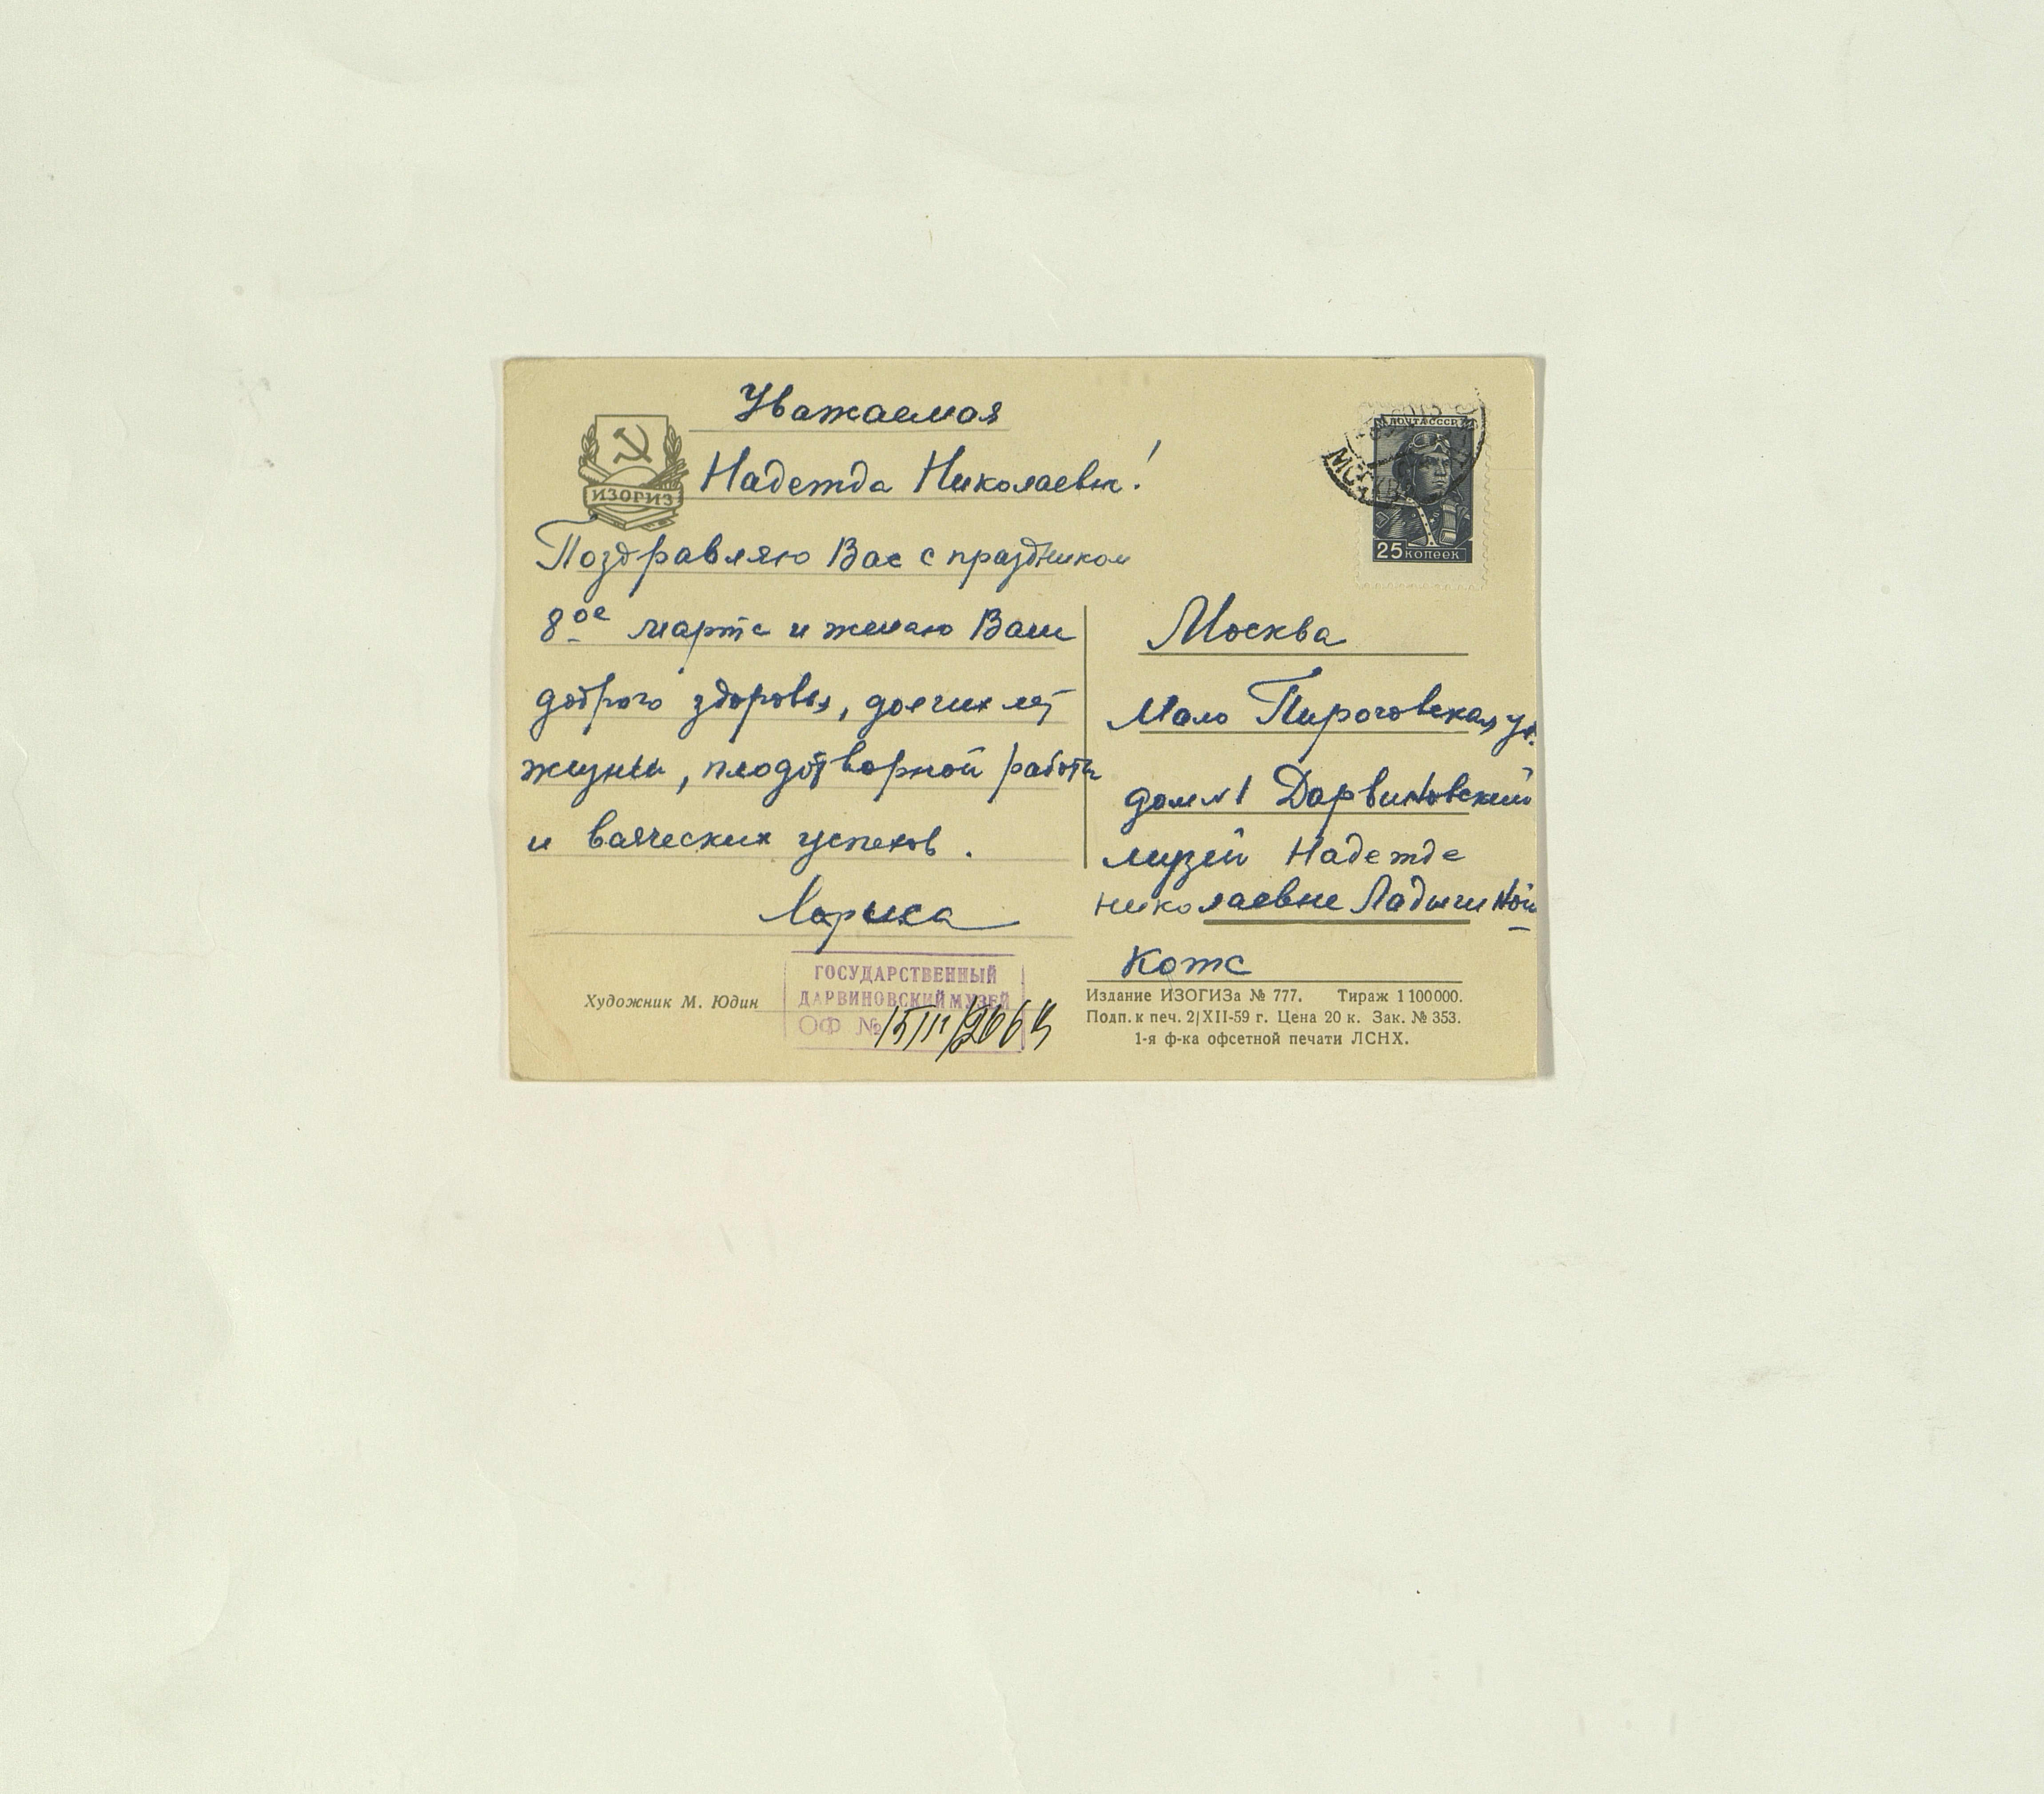 Уважаемая
Надежда Николаевна!
Поздравляю Вас с праздником
8ое марта и желаю Вам
доброго здоровья, долгих лет
жизни, плодотворной работы
и всяческих успехов.
Лариса
ИЗОГИЗ
ПОЧТА СССР
МОСКВА
25 КОПЕЕК
Москва
Мало Пироговская ул.
дом №1 Дарвиновский
музей Надежде
Николаевне Ладыгиной
Котс
Художник М. Юдин
ГОСУДАРСТВЕННЫЙ
ДАРВИНОВСКИЙ МУЗЕЙ
ОФ №
Издание ИЗОГИЗа № 777. Тираж 1 100 000.
Подп. к печ. 2/XII-59 г. Цена 20 к. Зак. № 353.
1-я ф-ка офсетной печати ЛСНХ.